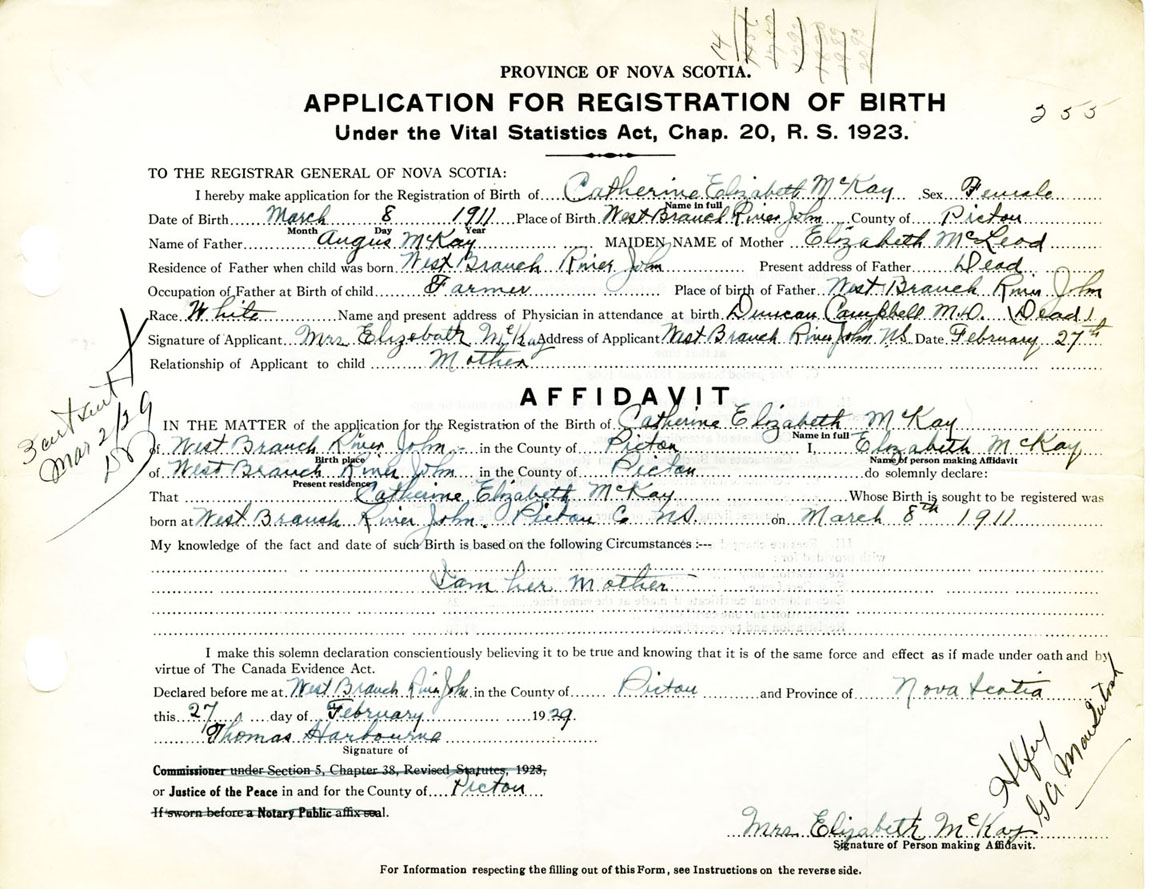 14
PROVINCE OF NOVA SCOTIA.
APPLICATION FOR REGISTRATION OF BIRTH
Under the Vital Statistics Act, Chap. 20, R. S. 1923.
255
TO THE REGISTRAR GENERAL OF NOVA SCOTIA:
I hereby make application for the Registration of Birth of Catherine Elizabeth McKay Sex Female
Name in full
Date of Birth March 8 1911 Place of Birth West Branch River John County of Pictou
Month Day Year
Name of Father Angus McKay MAIDEN NAME of Mother Elizabeth McLeod
Residence of Father when child was born West Branch River John Present address of Father Dead
Occupation of Father at Birth of child Farmer Place of birth of Father West Branch River John
Race White Name and present address of Physician in attendance at birth Duncan Campbell M.D. (Dead)
Signature of Applicant Mrs Elizebeth McKay Address of Applicant West Branch River John N.S. Date February 27th
Relationship of Applicant to child Mother
AFFIDAVIT
IN THE MATTER of the application for the Registration of the Birth of Catherine Elizabeth McKay
Name in full
of West Branch River John in the County of Pictou I, Elizabeth McKay
Birth place Name of person making Affidavit
of West Branch River John in the County of Pictou do solemnly declare:
Present residence
That Catherine Elizabeth McKay Whose Birth is sought to be registered was
born at West Branch River John Pictou C. N.S. on March 8th 1911
My knowledge of the fact and date of such Birth is based on the following Circumstances :---
I am her Mother
I make this solemn declaration conscientiously believing it to be true and knowing that it is of the same force and effect as if made under oath and by
virtue of The Canada Evidence Act.
Declared before me at West Branch River John in the County of Pictou and Province of Nova Scotia
this 27 day of February 1929.
Thomas Harbourne
Signature of
Commissioner under Section 5, Chapter 38, Revised Statutes, 1923,
or Justice of the Peace in and for the County of Pictou
If sworn before a Notary Public affix seal.
Mrs Elizabeth McKay
Signature of Person making Affidavit.
For Information respecting the filling out of this Form, see Instructions on the reverse side.
Mar 2/29